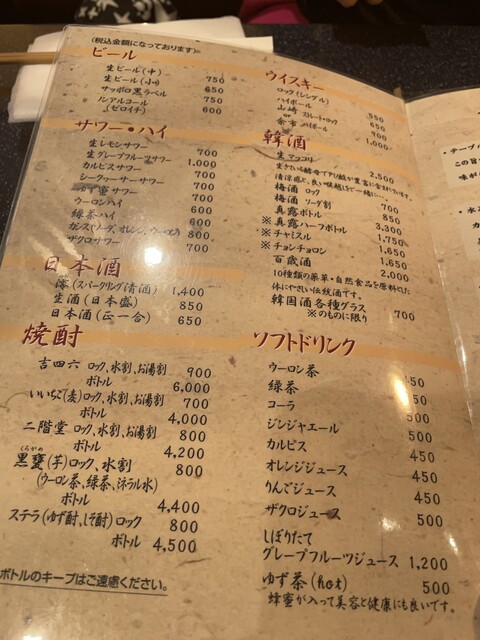 (税込金額になっております)
ビール
生ビール(中) 750
生ビール(小) 650
サッポロ黒ラベル 750
ノンアルコール 600
(ゼロイチ)
サワー・ハイ
生レモンサワー 700
生グレープフルーツサワー 1,000
シークァーサーサワー 700
ゆず蜜サワー 700
ウーロンハイ 600
緑茶ハイ 600
カシス(ソーダ、オレンジ、ウーロン) 800
ザクロサワー 700
日本酒
澪(スパークリング清酒) 1,400
生酒(日本盛) 850
日本酒(正一合) 650
焼酎
吉四六 ロック、水割、お湯割 900
ボトル 6,000
いいちこ(麦)ロック、水割、お湯割 700
ボトル 4,000
二階堂 ロック、水割、お湯割 800
ボトル 4,200
黒甕(芋)ロック、水割 800
(ウーロン茶、緑茶、ミネラル水)
ボトル 4,400
ステラ(ゆず酎、しそ酎)ロック 800
ボトル 4,500
ボトルのキープはご遠慮ください。
ウイスキー
ロック(シングル) 550
ハイボール 650
山崎 ストレート・ロック 900
or
余市 ハイボール 1,000
韓酒
生マッコリ 2,500
清涼感と、良い味感を一緒に・・・
梅酒 ロック 700
梅酒 ソーダ割 850
※真露ボトル 3,300
※真露ハーフボトル 1,750
※チャミスル 1,650
※チョンチョロン 1,650
百歳酒 2,000
10種類の薬草・自然食品を原料とした
体にやさしい伝統酒です。
韓国酒各種グラス 700
※のものに限り
ソフトドリンク
ウーロン茶 50
緑茶 50
コーラ 500
ジンジャエール 500
カルピス 450
オレンジジュース 450
りんごジュース 450
ザクロジュース 500
しぼりたて
グレープフルーツジュース 1,200
ゆず茶(hot) 500
蜂蜜が入って美容と健康にも良いです。
・テーブル
この旨
味が